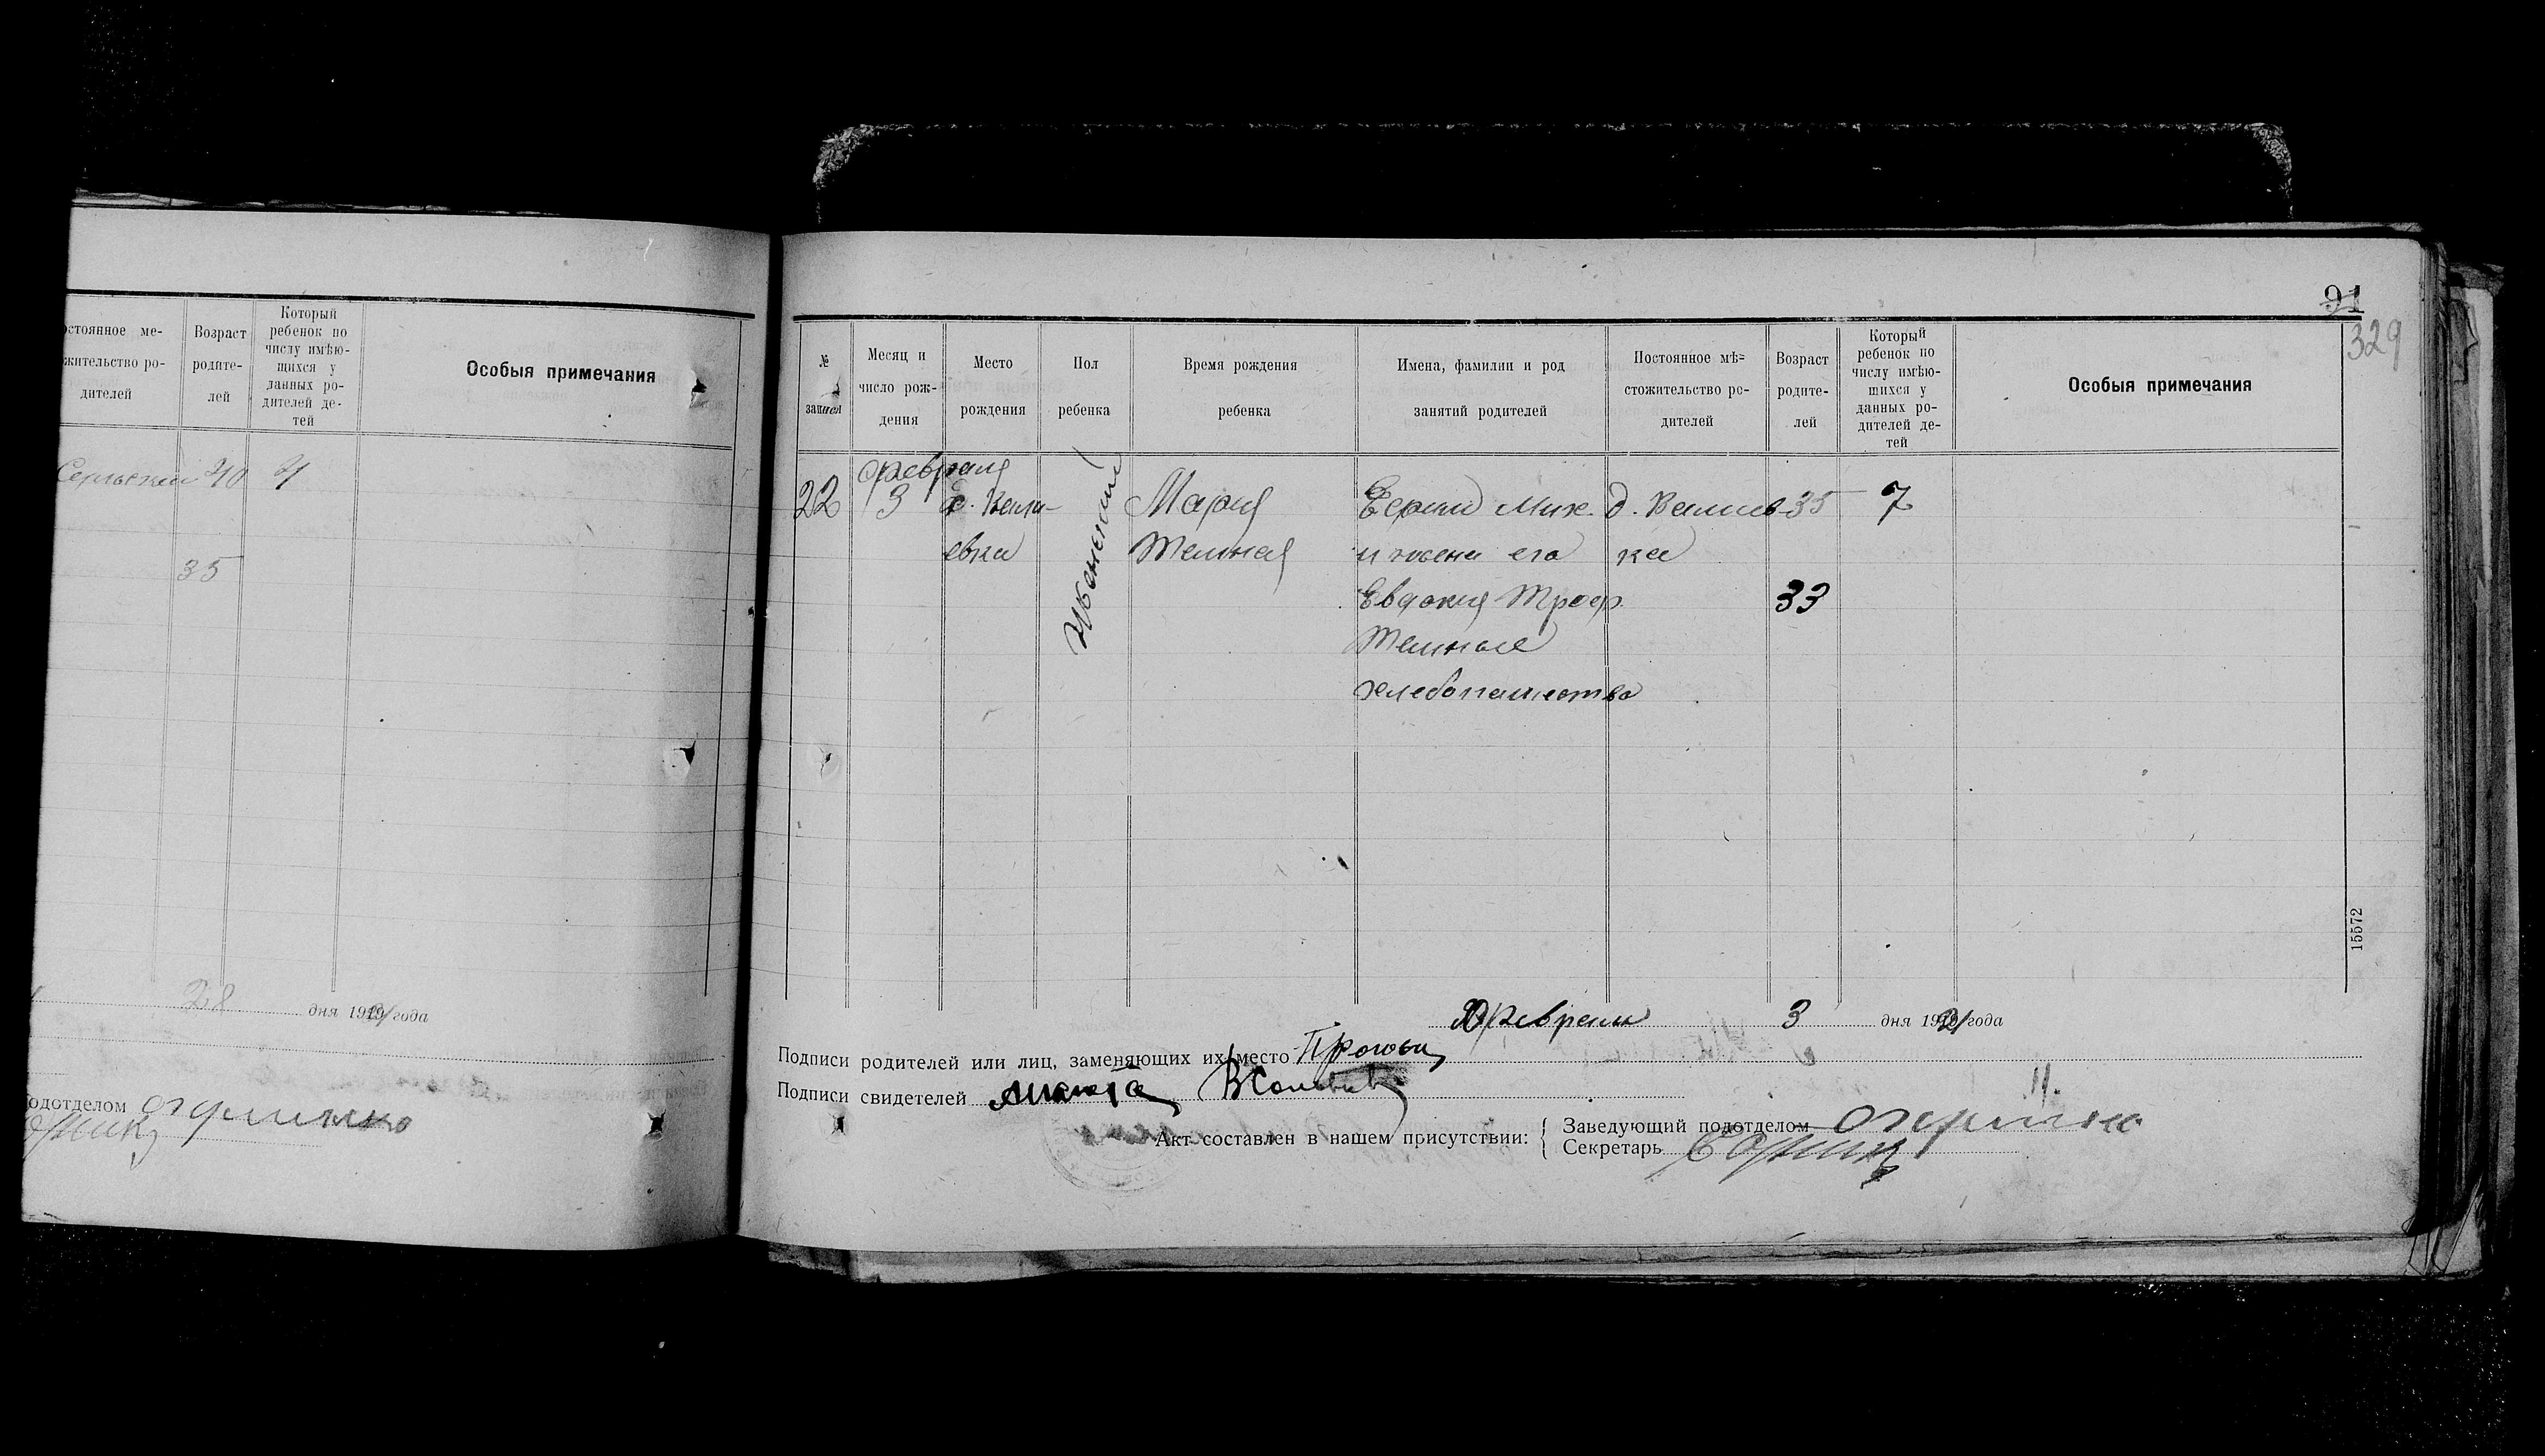 стоянное ме-
жительство ро-
дителей
Возраст
родите-
лей
Который
ребенок по
числу имѣю-
щихся у
данных ро-
дителей де-
тей
Особыя примечания
40 4
35
28 дня 1921 года
одотделом
91
329
№
записи
Месяц и
число рож-
дения
Место
рождения
Пол
ребенка
Время рождения
ребенка
Имена, фамилии и род
занятий родителей
Постоянное мѣ-
стожительство ро-
дителей
Возраст
родите-
лей
Который
ребенок по
числу имѣю-
щихся у
данных ро-
дителей де-
тей
Особыя примечания
22
февраля
3
д. Вели-
евка
Женский
Мария
Темная
Ефим Мих.
и жена его
Евдокия Троф.
Темные
хлебопашество
д. Велиев-
ка
35
33
7
15572
Февраля 3 дня 1921 года
Подписи родителей или лиц, заменяющих их место
Подписи свидетелей
Акт составлен в нашем присутствии:
Заведующий подотделом
Секретарь